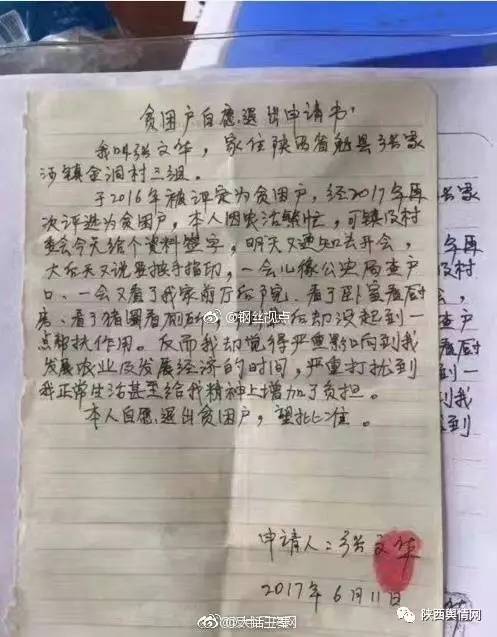 贫困户自愿退出申请书
我叫张文华，家住陕西省勉县张家
河镇金洞村三组。
于2016年被评定为贫困户，经2017年再
次评选为贫困户，本人因农活繁忙，可镇及村
委会今天给个资料签字，明天又通知去开会，
大后天又说要按手指印，一会儿像公安局查户
口、一会又看了我家前厅后院、看了卧室看厨
房、看了猪圈看厕所，后却没起到一
点帮扶作用。反而我却觉得严重影响到我
发展农业及发展经济的时间，严重打扰到
我正常生活甚至给我精神上增加了负担。
本人自愿退出贫困户，望批准。
申请人：张文华
2017年6月11日
张家
年再
及村
会，
查户
看厨
到一
到我
到
@钢丝视点
@大话王骞
陕西舆情网